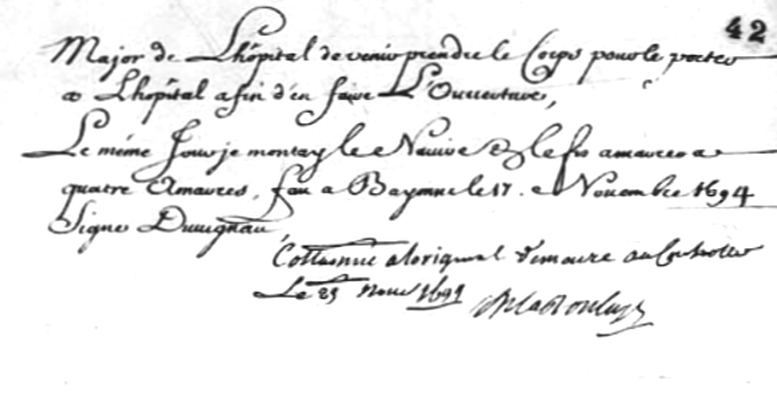 42
Major de Lhôpital de venir prendre le Corps pour le porter
a Lhôpital afin d'en faire L'Ouverture,
Le méme Jour je montay le Navire & le fis amarrer a
quatre Amarres, fau a Bayonne le 17. e Novembre 1694
Signe Duvignau,
Collationné a loriginal demeuré au Controlle
Le 25 Nove 1694